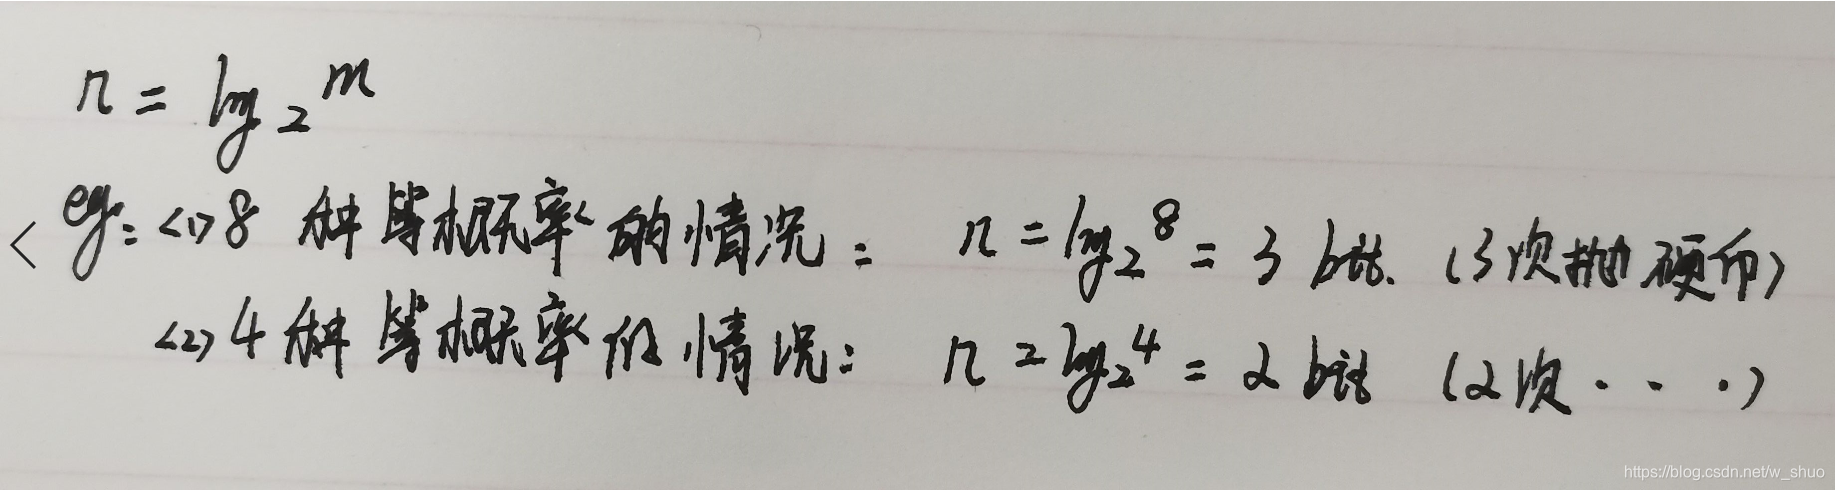 n = log₂ᵐ
< eg: <1> 8 种等概率的情况: n = log₂⁸ = 3 bit. (3次抛硬币)
<2> 4 种等概率的情况: n = log₂⁴ = 2 bit (2次...)
https://blog.csdn.net/w_shuo